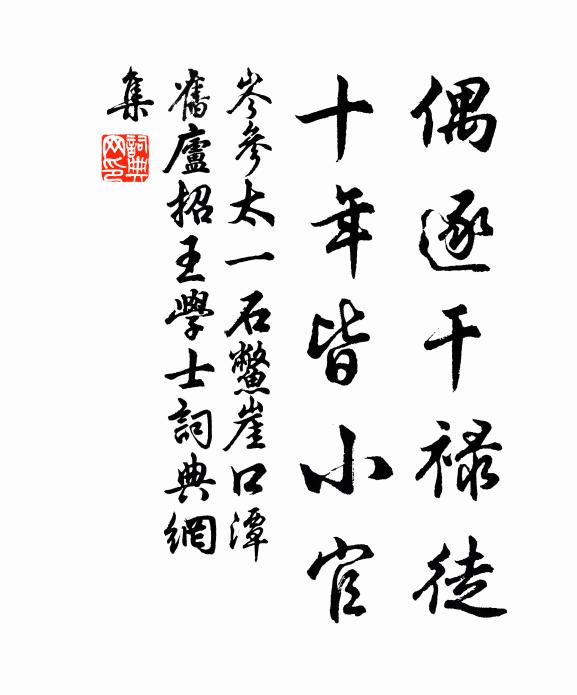 偶逐干祿徒
十年皆小官
岑參太一石鱉崖口潭
舊廬招王學士詞典網
集
詞典网印